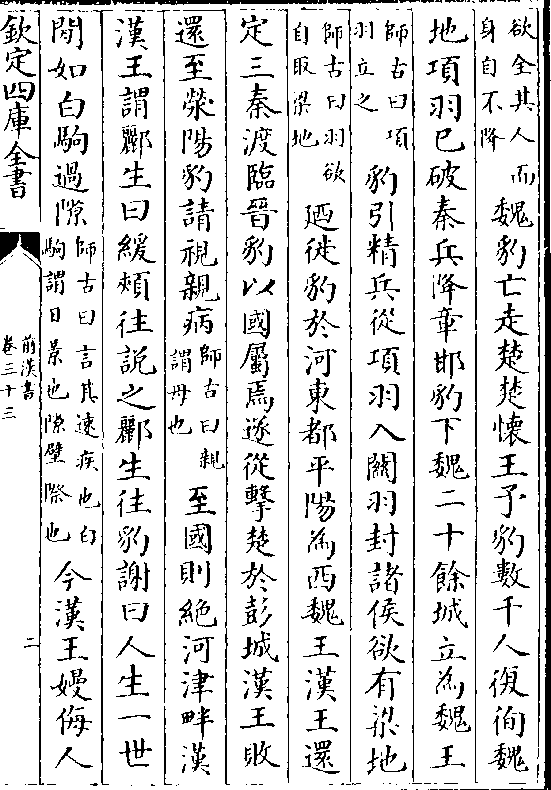 欲全其人而
身自不降
魏豹亡走楚楚懷王予豹數千人復徇魏
地項羽已破秦兵降章邯豹下魏二十餘城立為魏王
師古曰項
羽立之
豹引精兵從項羽入關羽封諸侯欲有梁地
師古曰羽欲
自取梁地
廼徙豹於河東都平陽為西魏王漢王還
定三秦渡臨晉豹以國屬焉遂從擊楚於彭城漢王敗
還至滎陽豹請視親病
師古曰親
謂母也
至國則絶河津畔漢
漢王謂酈生曰緩頰往說之酈生往豹謝曰人生一世
間如白駒過隙
師古曰言其速疾也白
駒謂日景也隙壁際也
今漢王嫚侮人
欽定四庫全書
前漢書
卷三十三
二